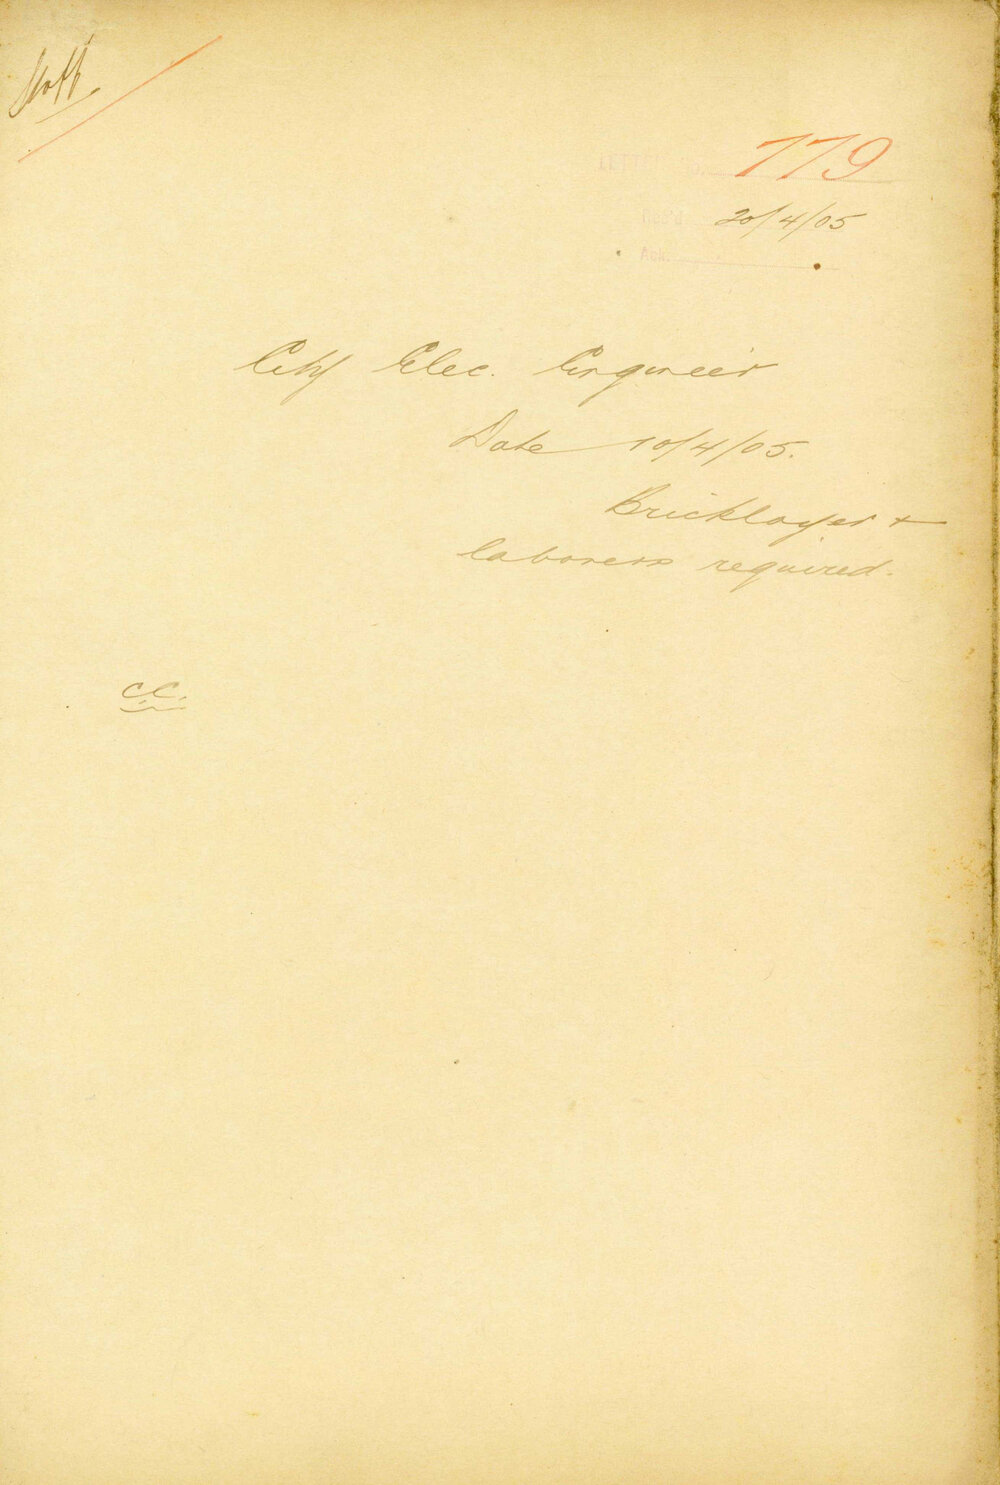 Staff
LETTER No. 779
Rec'd 20/4/05
Ack.
City Elec. Engineer
Date 10/4/05.
Bricklayer +
laborers required.
C.C.